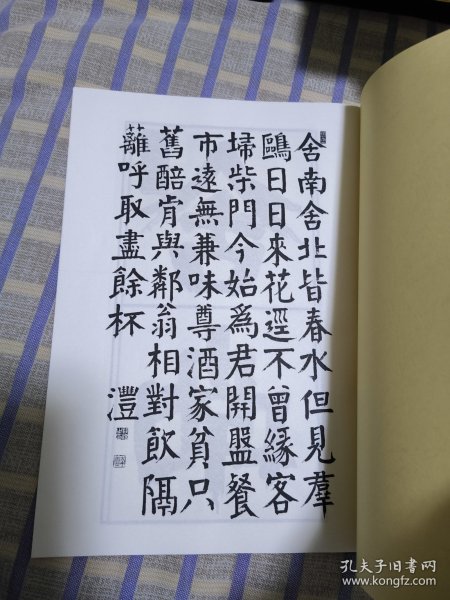 舍南舍北皆春水但見羣
鷗日日來花逕不曾緣客
埽柴門今始爲君開盤餐
市遠無兼味尊酒家貧只
舊醅肯與鄰翁相對飲隔
蘺呼取盡餘杯
澧
孔夫子旧书网
www.kongfz.com